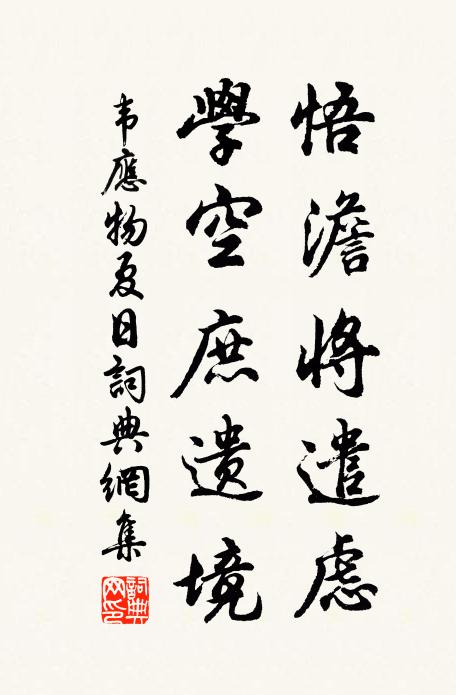 悟澹將遣慮
學空庶遺境
韋應物夏日詞典網集
詞典网印